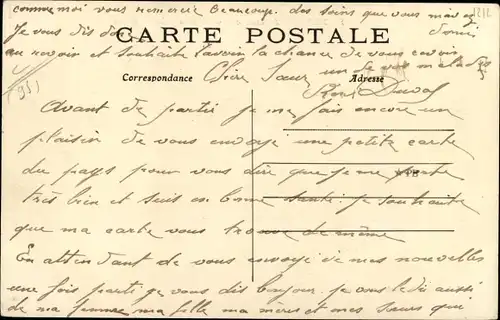 comme moi vous remercie Beaucoup. des soins que vous m'avez
donnés
Je vous dis donc
CARTE POSTALE
au revoir et souhaite d'avoir la chance de vous revoir
un de vos malades
Correspondance Chère Sœur Adresse
René Duval
(95)
Avant de partir je me fais encore un
plaisir de vous envoyé une petite carte
du pays pour vous dire que je me porte
très bien et suis en bonne santé. je souhaite
que ma carte vous trouve de même
En attendant de vous envoyé de mes nouvelles
une fois parti je vous dis bonjour. je vous le dis aussi
de ma femme ma fille ma mères et mes sœurs qui